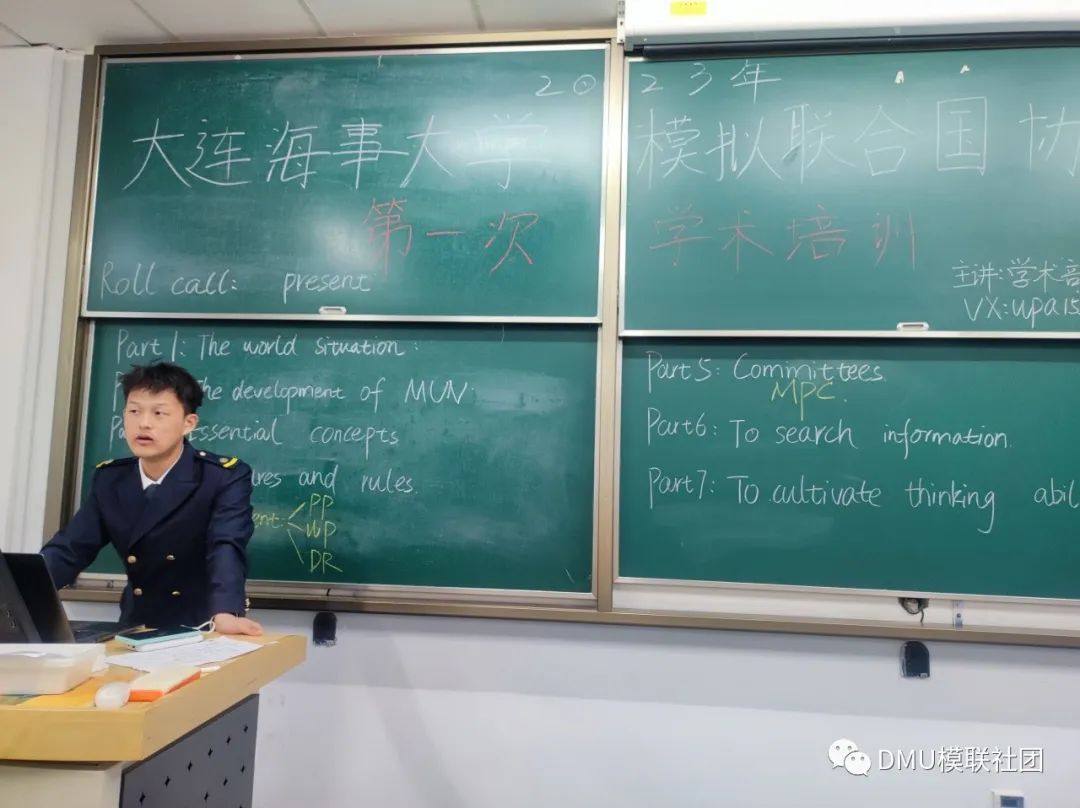 2023年
大连海事大学 模拟联合国协
第一次 学术培训
Roll call: present
主讲:学术部
VX:upa15
Part 1: The world situation:
the development of MUN
essential concepts
and rules.
PP
WP
DR
Part 5: Committees.
MPC.
Part 6: To search information.
Part 7: To cultivate thinking
DMU模联社团